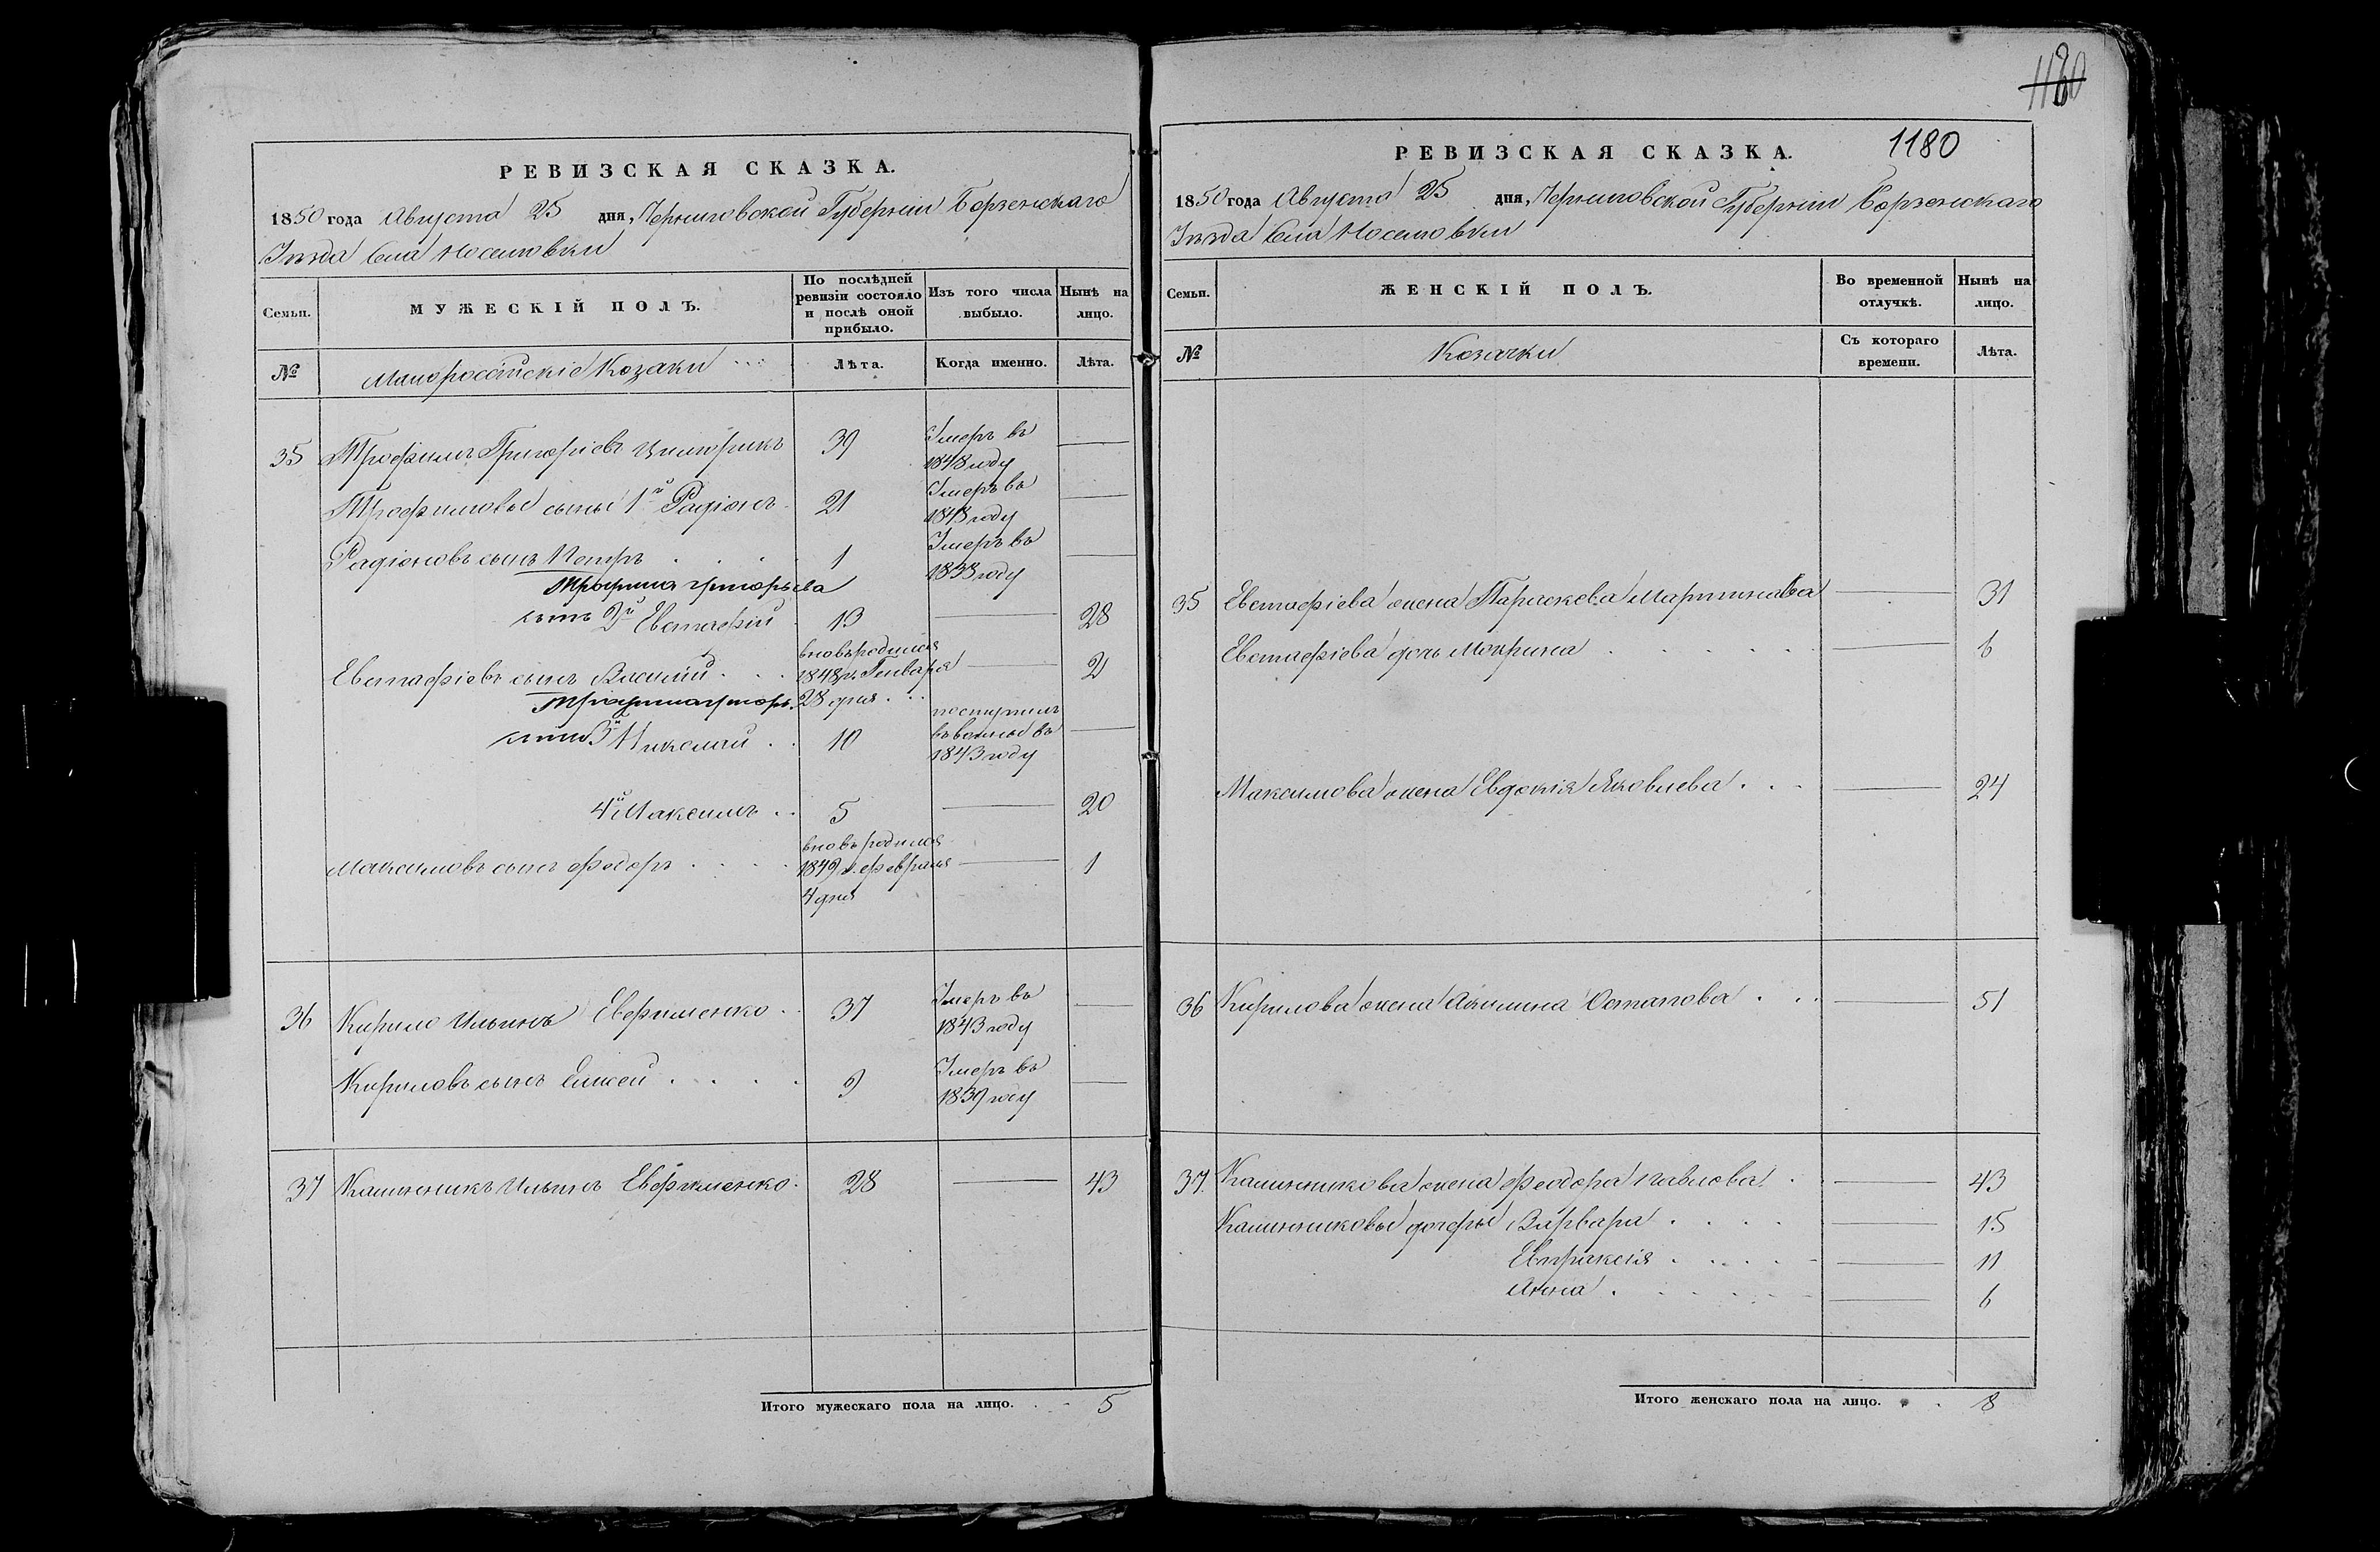 РЕВИЗСКАЯ СКАЗКА.
1850 года Августа 25 дня, Черниговской Губерніи Борзенскаго
Уѣзда Села Носеловки
Семьи.
МУЖЕСКІЙ ПОЛЪ.
По послѣдней ревизіи состояло и послѣ оной прибыло.
Изъ того числа выбыло.
Нынѣ на лицо.
№
Малороссійскіе Козаки
Лѣта.
Когда именно.
Лѣта.
35 Трофимъ Григоріевъ 39 Умеръ въ 1848 году
Трофимовы сыны 1й Радіонъ 21 Умеръ въ 1843 году
Радіоновъ сынъ Петръ 1 Умеръ въ 1833 году
Трофима Григорьева
сынъ 2й Евстафій 13 28
Евстафіевъ сынъ Василий вновь родился 1848 г. Генваря 28 дня 2
Трофима Григорь.
сынъ 3й Николай 10 поступилъ въ военные въ 1843 году
4й Максимъ 5 20
Максимовъ сынъ Федоръ вновь родился 1849 г. Февраля 4 дня 1
36 Кирило Ильинъ Евфименко 37 Умеръ въ 1843 году
Кириловъ сынъ Елисей 9 Умеръ въ 1839 году
37 Калинникъ Ильинъ Евфименко 28 43
Итого мужескаго пола на лицо. 5
1180
1180
РЕВИЗСКАЯ СКАЗКА.
1850 года Августа 25 дня, Черниговской Губерніи Борзенскаго
Уѣзда Села Носеловки
Семьи.
ЖЕНСКІЙ ПОЛЪ.
Во временной отлучкѣ.
Нынѣ на лицо.
№
Козачки
Съ котораго времени.
Лѣта.
35 Евстафіева жена Параскева Мартинова 31
Евстафіева дочь Мокрина 6
Максимова жена Евдокія Яковлева 24
36 Кирилова жена Акилина Остапова 51
37. Калинникова жена Феодора Павлова 43
Калинниковы дочери Варвара 15
Евпраксія 11
Анна 6
Итого женскаго пола на лицо. 8